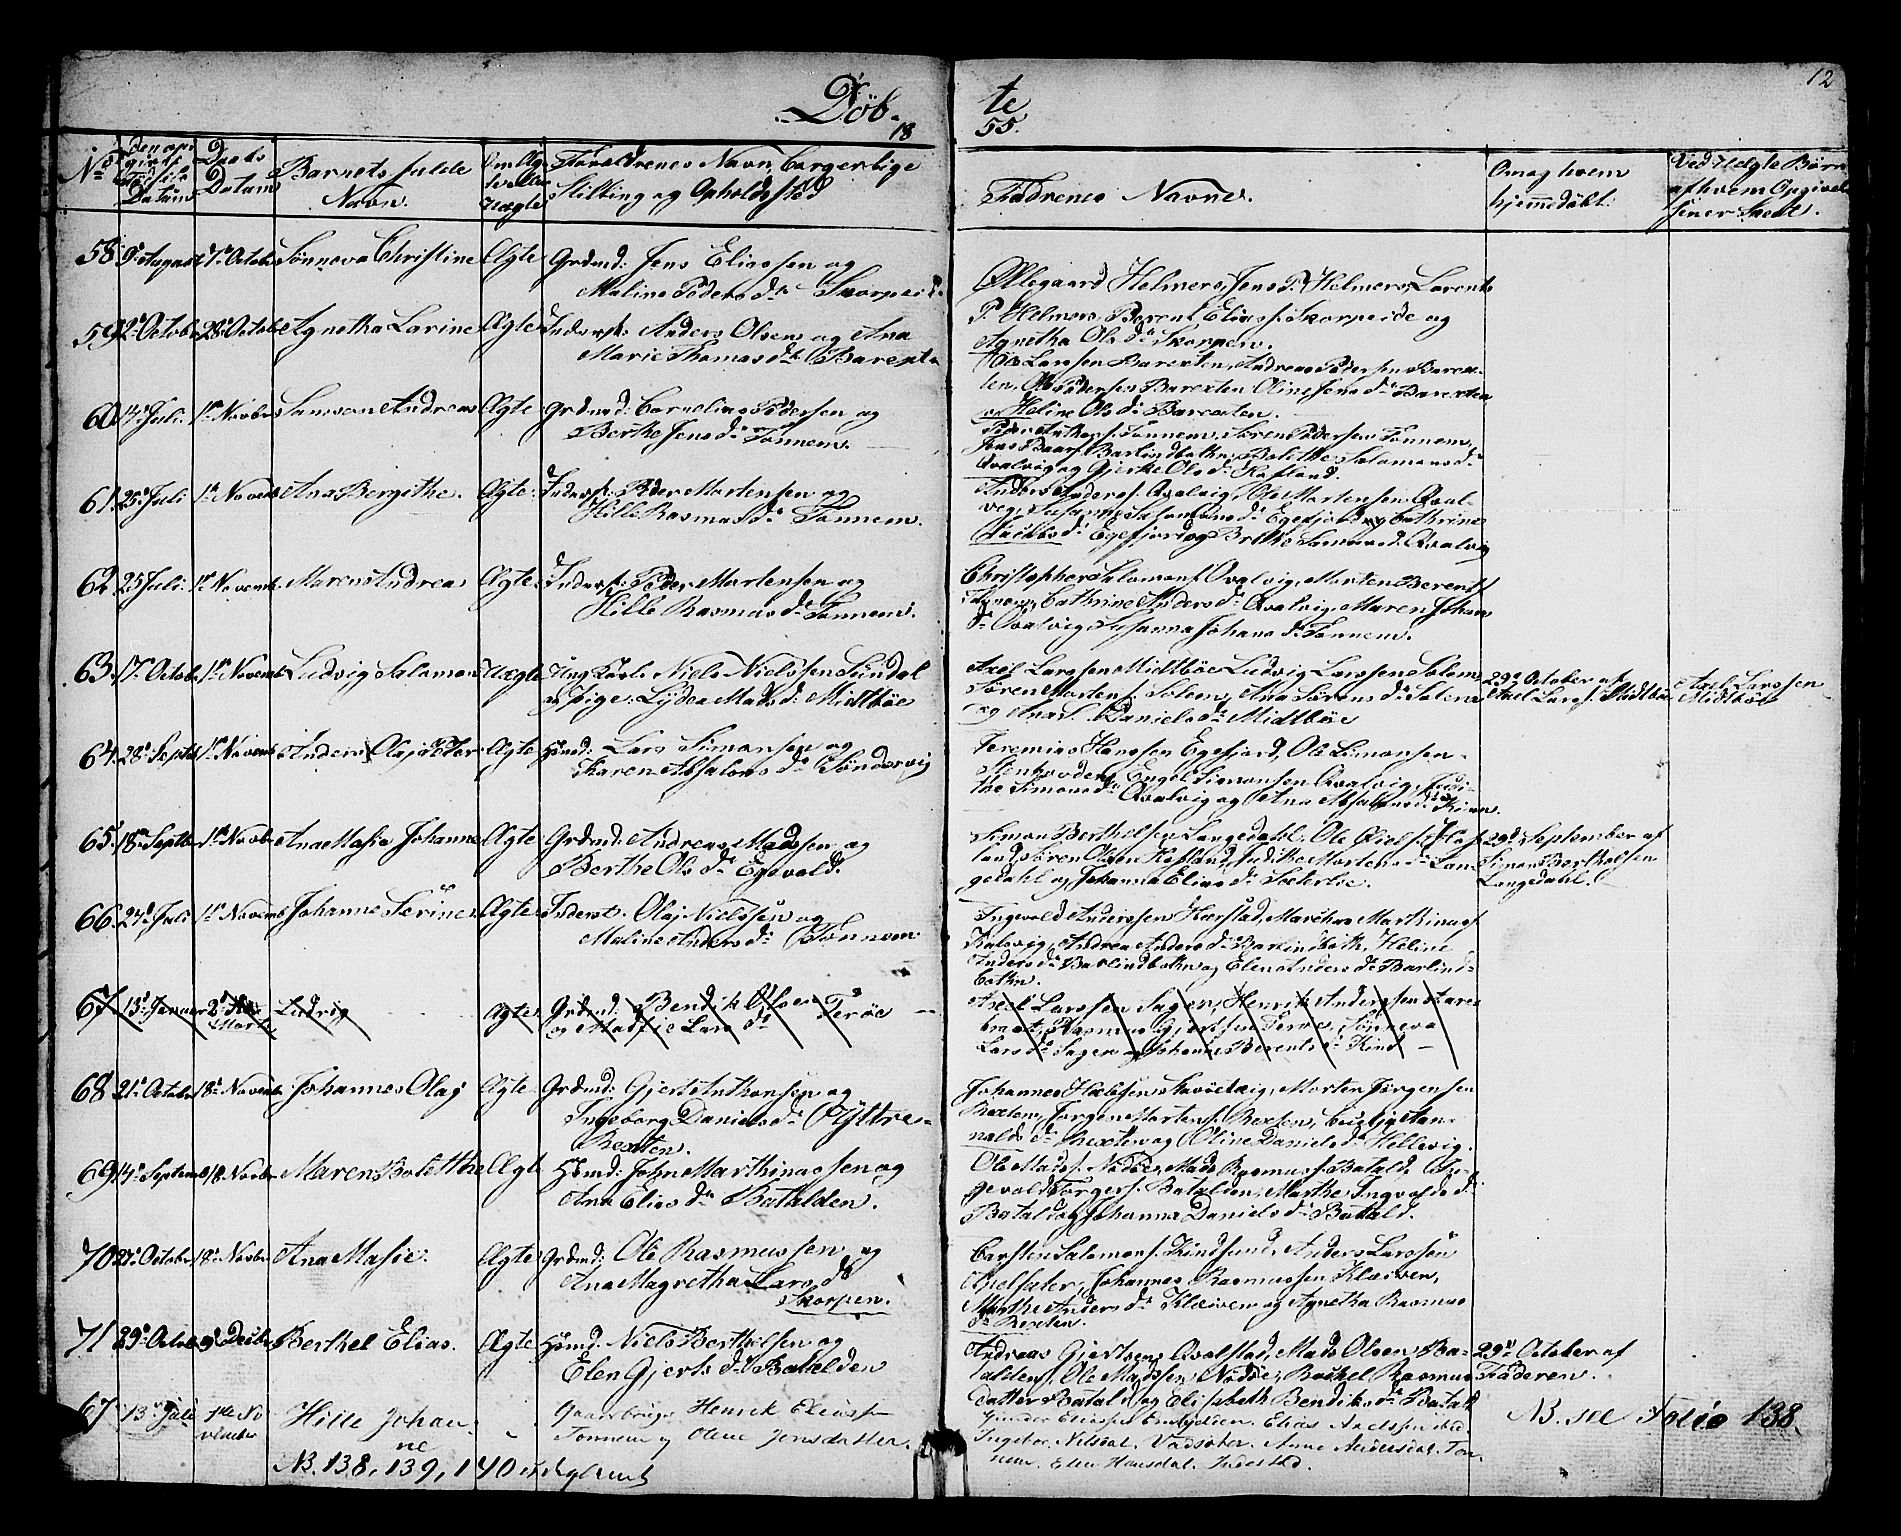 12
Döb- te
18 55.
No Fødsels Datum Daabs Datum Barnets fulde Navn. Om Ægte eller Uægte Forældrenes Navn, borgerlige Stilling og Opholdssted Faddrenes Navne. Om og hvem hjemmedöbt. Ved Uægte Börn af hvem Opgivelsen er skeet.
58 9de August 7de Octob Sønneva Christine Ægte Grdmd: Jens Eliassen og
Maline Peders dr Skorpeid.
Ollegaard Helmers, Jens P. Helmers, Lorents
P. Helmers, Berent Elias s. Skorpeide og
Agnetha Ols dr Skorpen.
59 2de Octob 28de Octob Agnetha Larine Ægte Inderst: Anders Olsen og Ana
Marie Thomas dr Barexten
Ole Larssen Barexten, Andreas Pedersen Barex-
ten, Ole Pedersen Barexten Oline Jens dr Barexten
og Heline Ols dr Barexten.
60 14de Juli 1ste Novbr Samson Andreas Ægte Grdmd: Cornelius Pedersen og
Berthe Jens dr Tonnem.
Peder Anthons. Tonnem, Sören Pedersen Tonnem,
Jens Baars. Barlindbotn, Bolethe Salomons dr
Qvalvig og Gjertke Ols dr Hafland.
61 25de Juli 1ste Novemb Ana Bergithe. Ægte: Inderst: Peder Mortensen og
Hille Rasmus dr Tonnem.
Anders Anders s. Qvalvig, Ole Martensen Qval-
vig, Susanne Salomons dr Egefjord og Cathrine
Jacobs dr Egefjord og Brithe Samsons dr Qvalvig
62 25 Juli 1ste Novemb Maren Andrea Ægte: Inderst: Peder Mortensen og
Hille Rasmus dr Tonnem.
Christopher Salomons. Qvalvig, Morten Berents.
Tonnem, Cathrine Anders dr Qvalvig, Maren Johans
dr Qvalvig Susanna Johans dr Tonnem.
63 17de Octob 1ste Novemb Ludvig Salomon Uægte Ung Karl Niels Nielssen Sundal
og Pige Lydea Mads dr Midtböe
Axel Larssen Midtböe Ludvig Larssen Solem
Sören Mortens s. Solem, Ana Sörens dr Solem
og Ana S. Daniels dr Midtböe
29de October af
Axel Lars s. Midtböe
Axel Larssen
Midtböe
64 28de Septbr 1ste Novemb Anders Olaj Peter Ægte Hsmd: Lars Simonsen og
Karen Absalons dr Söndervig
Jeremias Hanssen Egefjord, Ole Simonsen
Stenhovden, Engel Simonsen Qvalvig, Judi-
the Simons dr Qvalvig og Ana Absalons dr
65 18de Septbr 1ste Novbr Ana Masie Johanne Ægte Grdmd: Andreas Madssen og
Berthe Ols dr Egevold.
Simon Berthelsen Langedahl, Ole Olsen Haf-
land, Sören Olsen Hafland, Judithe Mortens dr Lan-
gedahl og Johanna Elias dr Sæterlie.
29de September af
Simon Berthelsen
Langedahl.
66 24de Juli 1ste Novemb Johanne Serine Ægte Inderst. Olaj Nielssen og
Maline Anders dr Tonnem
Ingevold Anderssen Hærstad, Marthin Marthinus s.
Kalsvig, Andrea Anders dr Barlindbotn, Heline
Anders dr Barlindbotn og Elen Anders dr Barlind-
botn.
67 13de Januar 2de Marts Ludvig Ægte Grdmd: Bendik Olsen Feröe
og Masie Lars dr
Axel Larssen Sagen, Henrik Anderssen Aare-
braat, Rasmus Gjertsen Feröe, Sønneva
Lars dr Sagen og Johanne Berents dr Kind
68 21de October 18de Novemb Johannes Olaj Ægte Grdmd: Gjert Anthonsen og
Ingeborg Daniels dr Yttre-
Rexten.
Johannes Stavöevig, Morten Jörgensen
Rexten, Jorgen Mortens s. Rexten,
nalds dr Rexten og Oline Daniels dr Hellevig.
69 14de Septem 18 Novbr Maren Bolethe Ægte Hsmd: John Marthinussen og
Ana Elias dr Batalden.
Ole Mads s. Nödöe, Mads Rasmus s. Batald, In-
gevald Torgers s. Batalden, Marthe Ingvolds dr
Batald og Johanna Daniels dr Batald.
70 21de October 18de Novbr Ana Masie. Ægte Grdmd: Ole Rasmussen og
Ana Magretha Lars dr
Skorpen.
Carsten Salomons. Kindsund, Anders Larssen
Opelsæter, Johannes Rasmussen Kleiven,
Marthe Anders dr Kleiven og Agnetha Rasmus
dr Rexten.
71 29de Octob 9de Decbr Berthel Elias. Ægte Hsmd: Niels Berthelsen og
Elen Gjerts dr Batalden
Andreas Gjertsen Qvalstad, Mads Olsen Ba-
talden, Ole Madssen Nödöe, Rachel Rasmus
datter Batald og Elisabeth Bendiks dr Batald
29de October af
Faderen.
67 13de Juli 1ste No-
vember Hille Johan-
ne
Gaardbruger Henrik Eliassen
Tonnem og Olene Jensdatter.
Gunder Eliassen Endestden, Elias Axelssen ibd
Ingebor Nilsdat. Vadsöter. Anne Andersdat. Ton-
nem. Elen Hansdat. Indrebö.
NB. see Folio 138.
NB. 138, 139, 140 er